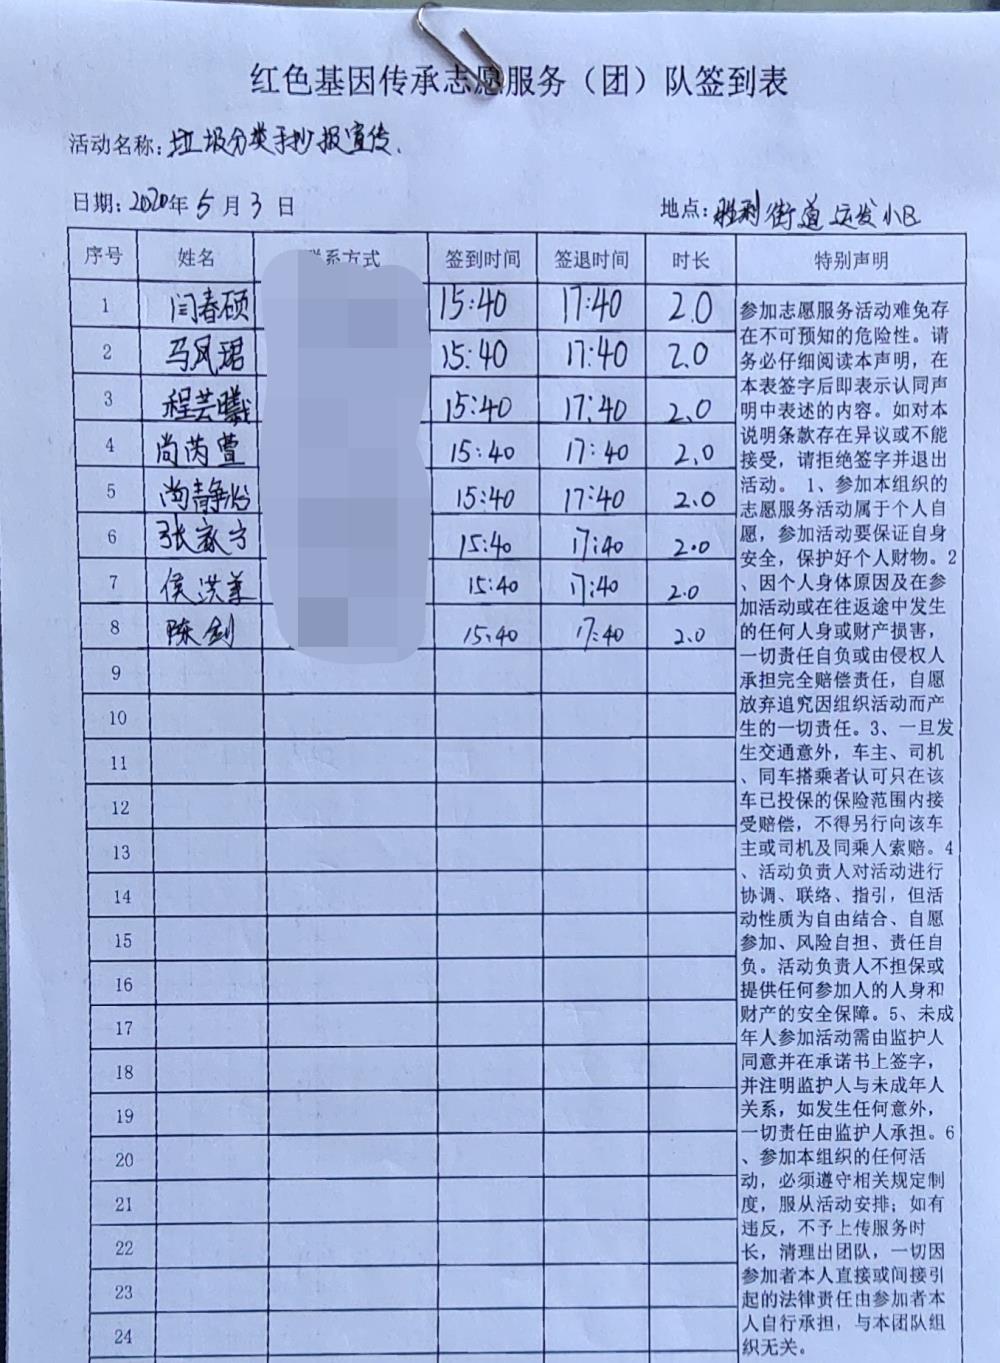 红色基因传承志愿服务（团）队签到表
活动名称：垃圾分类手抄报宣传.
日期：2020年5月3日 地点：胜利街道运发小区
序号 姓名 联系方式 签到时间 签退时间 时长 特别声明
1 闫春硕 15:40 17:40 2.0
2 马凤珺 15:40 17:40 2.0
3 程芸曦 15:40 17:40 2.0
4 尚芮萱 15:40 17:40 2.0
5 尚静 15:40 17:40 2.0
6 张家宁 15:40 17:40 2.0
7 侯洪 15:40 17:40 2.0
8 陈剑 15:40 17:40 2.0
9
10
11
12
13
14
15
16
17
18
19
20
21
22
23
24
参加志愿服务活动难免存
在不可预知的危险性。请
务必仔细阅读本声明，在
本表签字后即表示认同声
明中表述的内容。如对本
说明条款存在异议或不能
接受，请拒绝签字并退出
活动。 1、参加本组织的
志愿服务活动属于个人自
愿，参加活动要保证自身
安全，保护好个人财物。2
、因个人身体原因及在参
加活动或在往返途中发生
的任何人身或财产损害，
一切责任自负或由侵权人
承担完全赔偿责任，自愿
放弃追究因组织活动而产
生的一切责任。3、一旦发
生交通意外，车主、司机
、同车搭乘者认可只在该
车已投保的保险范围内接
受赔偿，不得另行向该车
主或司机及同乘人索赔。4
、活动负责人对活动进行
协调、联络、指引，但活
动性质为自由结合、自愿
参加、风险自担、责任自
负。活动负责人不担保或
提供任何参加人的人身和
财产的安全保障。5、未成
年人参加活动需由监护人
同意并在承诺书上签字，
并注明监护人与未成年人
关系，如发生任何意外，
一切责任由监护人承担。6
、参加本组织的任何活
动，必须遵守相关规定制
度，服从活动安排；如有
违反，不予上传服务时
长，清理出团队，一切因
参加者本人直接或间接引
起的法律责任由参加者本
人自行承担，与本团队组
织无关。